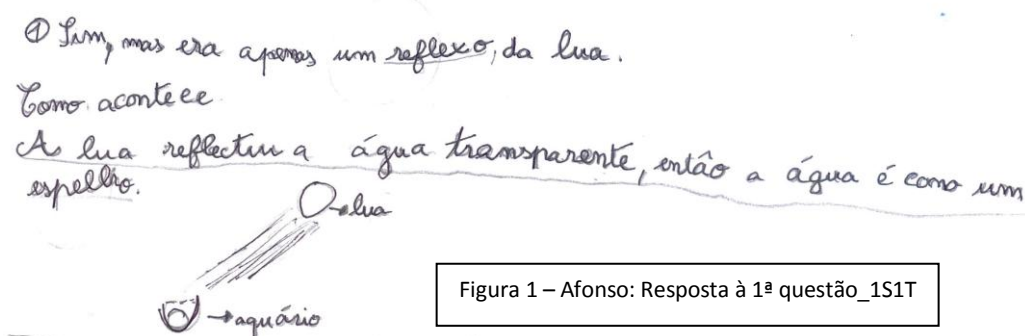 ① Sim, mas era apenas um reflexo, da lua.
Como acontece
A lua reflectiu a água transparente, então a água é como um
espelho.
lua
aquário
Figura 1 – Afonso: Resposta à 1ª questão_1S1T